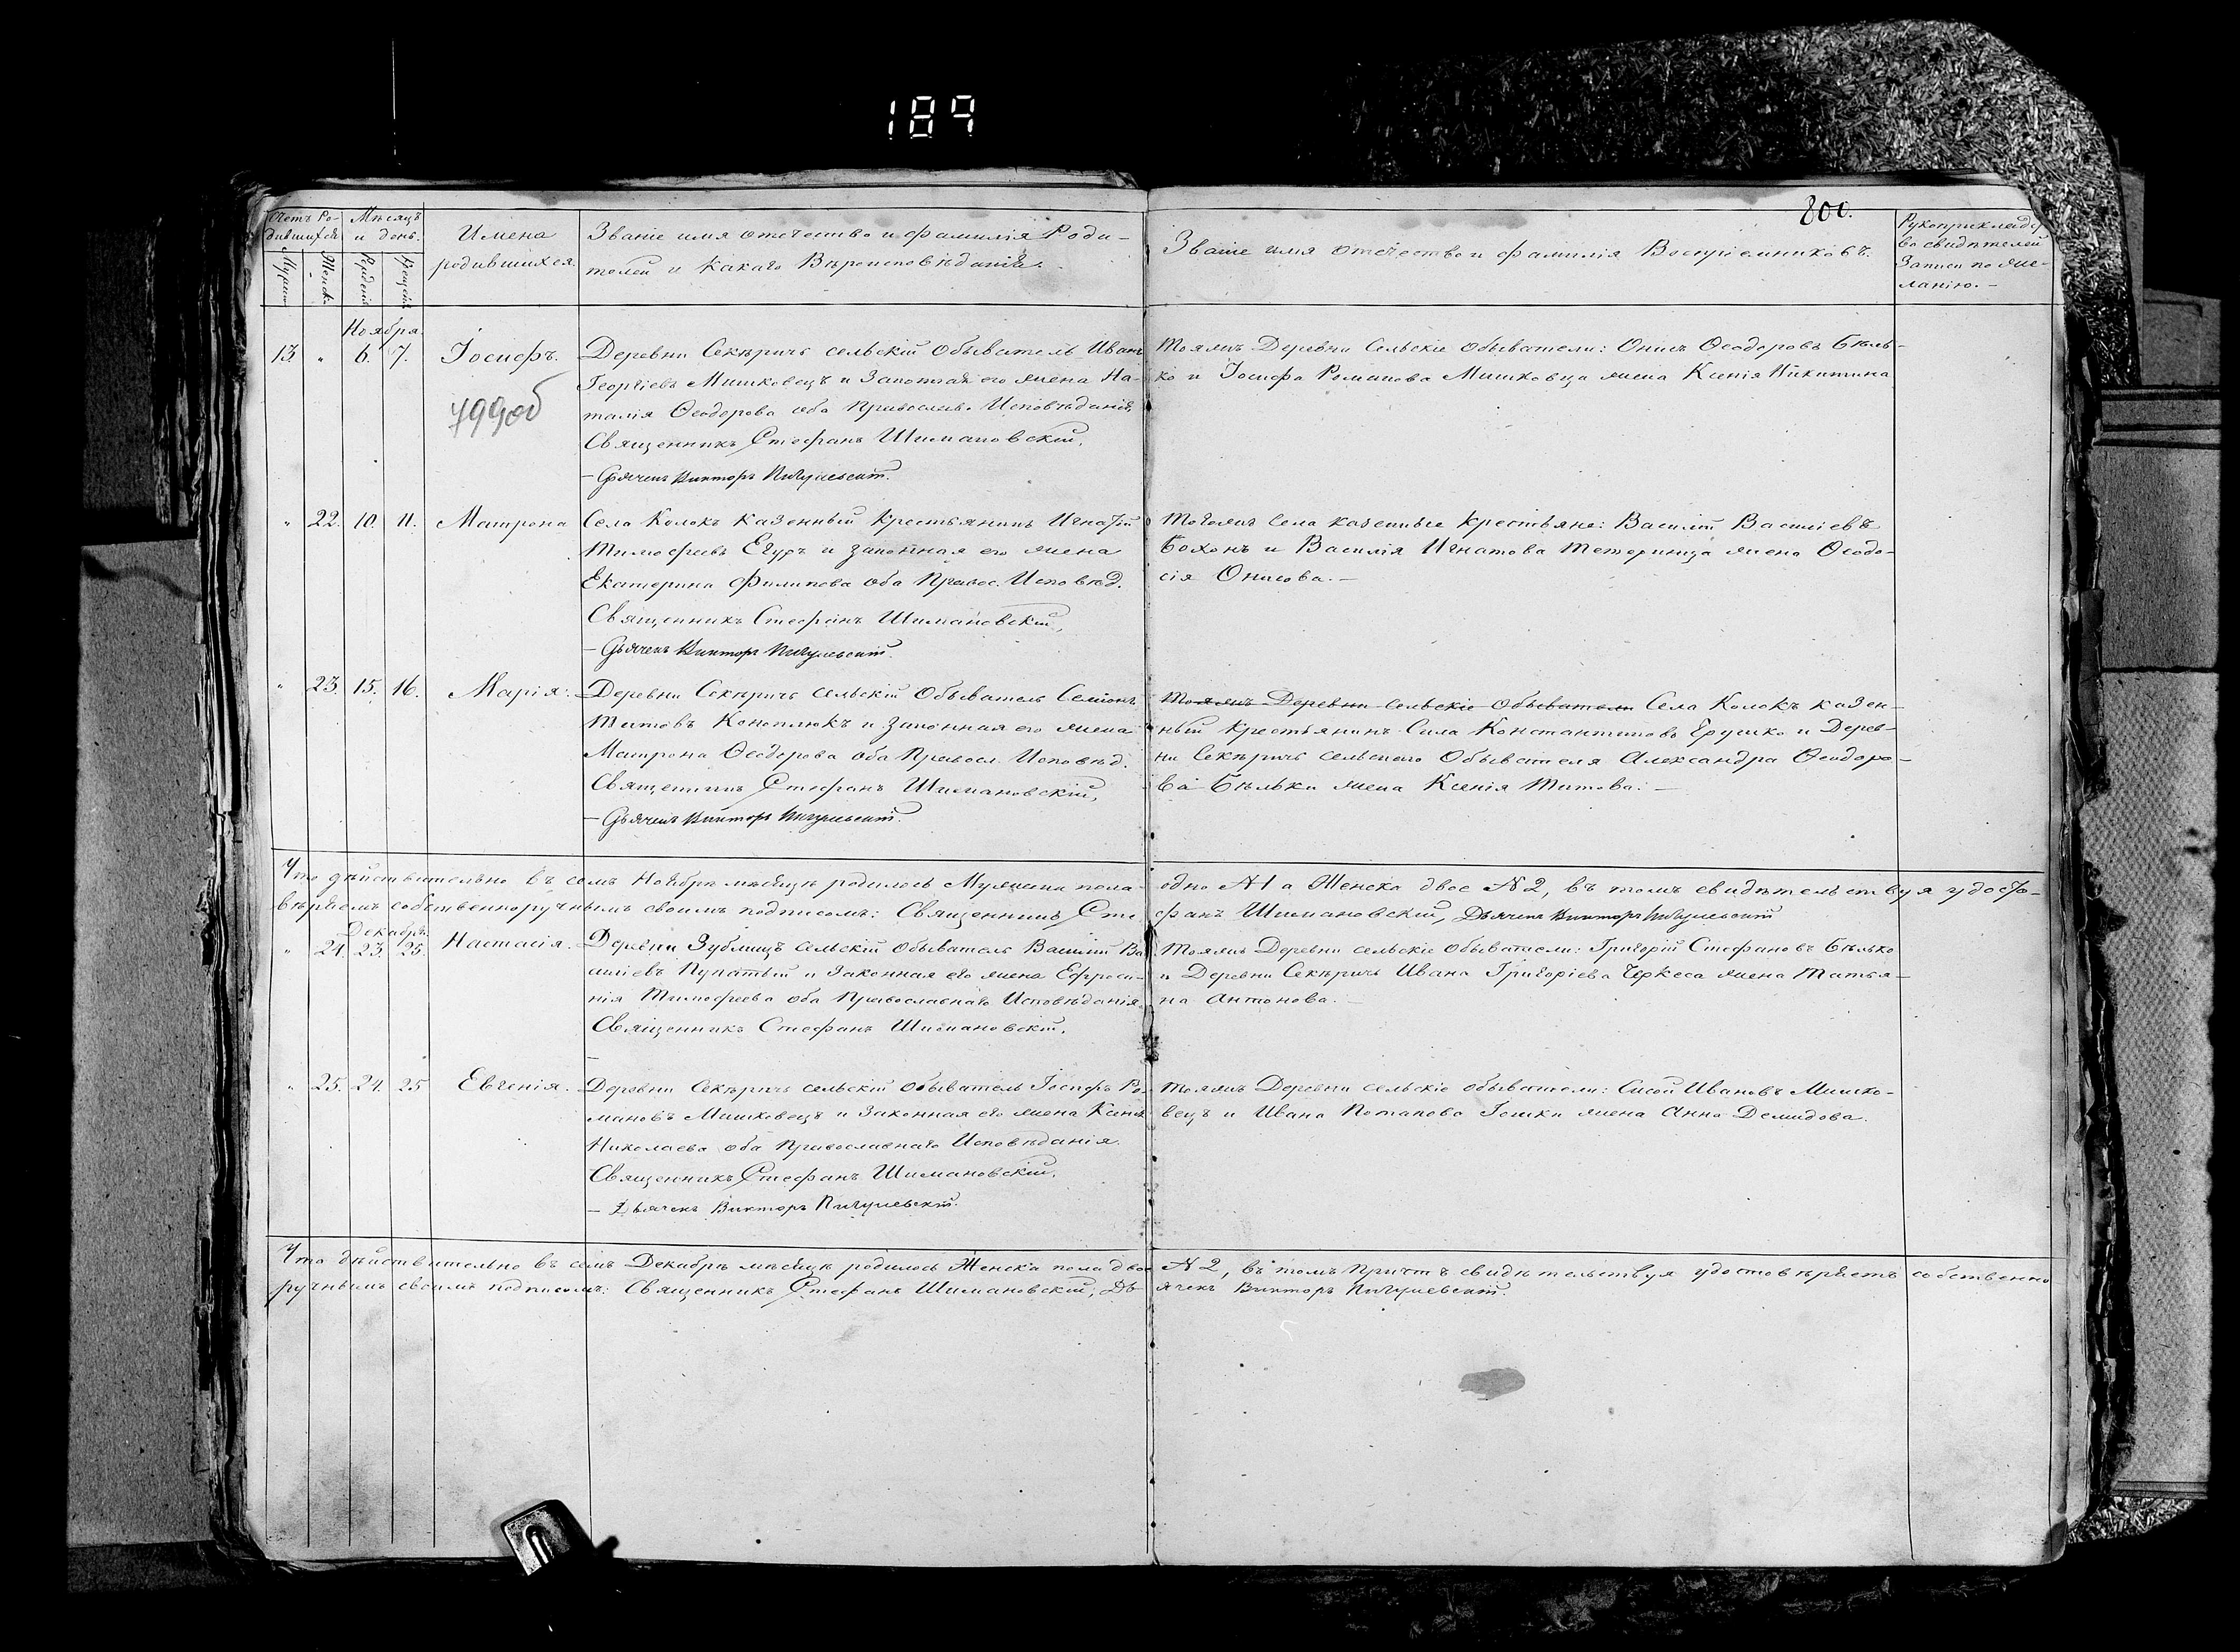 189
800.
Счетъ Ро-
дившихся
Мѣсяцъ
и день.
Имена
родившихся.
Званіе имя отечество и фамилія Роди-
телей и какаго Вѣроисповѣданія.
Званіе имя отечество и фамилія Воспріемниковъ.
Рукоприкладс
во свидѣтелей
Записи по же-
ланію. –
Мужск
Женск
Рожденія
Крещенія
Ноября.
13. " 6. 7. Іосифъ.
799об
Деревни Секѣричъ сельскій Обыватель Иванъ
Георгіевъ Мишковецъ и Законная его жена На-
талія Ѳеодорова оба Православ. Исповѣданія.
Священникъ Стефанъ Шимановскій,
– Дьячекъ Викторъ Пигулевскій.
Тояжъ Деревни Сельскіе Обыватели: Онисъ Ѳеодоровъ Бѣль-
ко и Іосифа Романова Мишковца жена Ксенія Никитина
" 22. 10. 11. Матрона
Села Колокъ казенный крестьянинъ Игнатій
Тимофеевъ Егуръ и законная его жена
Екатерина Филипова оба Правос. Исповѣд.
Священникъ Стефанъ Шимановскій,
– Дьячекъ Викторъ Пигулевскій.
Тогожъ Села казенные крестьяне: Василій Василіевъ
Бохонъ и Василія Игнатова Тетеринца жена Ѳеодо-
сія Онисова. –
" 23. 15. 16. Марія.
Деревни Секѣричъ сельскій Обыватель Семіонъ
Титовъ Коноплюкъ и законная его жена
Матрона Ѳеодорова оба Правосл. Исповѣд.
Священникъ Стефанъ Шимановскій,
– Дьячекъ Викторъ Пигулевскій.
Тояжъ Деревни сельскіе Обыватели Села Колокъ казен-
ный крестьянинъ Сила Константиновъ Ерушко и Дерев-
ни Секѣричъ сельскаго Обывателя Александра Ѳеодоро-
ва Бѣльки жена Ксенія Титова. –
Что дѣйствительно въ семъ Ноябрѣ мѣсяцѣ родилось Мужеска пола одно №1 а Женска двое №2, въ томъ свидѣтельствуя удосто-
вѣряемъ собственноручнымъ своимъ подписомъ: Священникъ Стефанъ Шимановскій, Дьячекъ Викторъ Пигулевскій
Декабря.
" 24. 23. 25. Настасія.
Деревни Зублищъ сельскій Обыватель Василій Ва
силіевъ Пупатый и Законная его жена Ефроси-
нія Тимофеева оба Православнаго Исповѣданія.
Священникъ Стефанъ Шимановскій.
–
Тояжъ Деревни сельскіе Обыватели: Григорій Стефановъ Бѣлько
и Деревни Секѣричъ Ивана Григоріева Черкеса жена Татья-
на Антонова. –
" 25. 24. 25 Евгенія.
Деревни Секѣричъ сельскій Обыватель Іосифъ Ро-
мановъ Мишковецъ и Законная его жена Ксенія
Николаева оба Православнаго Исповѣданія.
Священникъ Стефанъ Шимановскій,
– Дьячекъ Викторъ Пигулевскій.
Тояжъ Деревни сельскіе обыватели: Сисой Ивановъ Мишко-
вецъ и Ивана Потапова Гошки жена Анна Демидова.
Что дѣйствительно въ семъ Декабрѣ мѣсяцѣ родилось Женска пола двое №2, въ томъ Причтъ свидѣтельствуя удостовѣряетъ собственно
ручнымъ своимъ подписомъ: Священникъ Стефанъ Шимановскій, Дьячекъ Викторъ Пигулевскій.